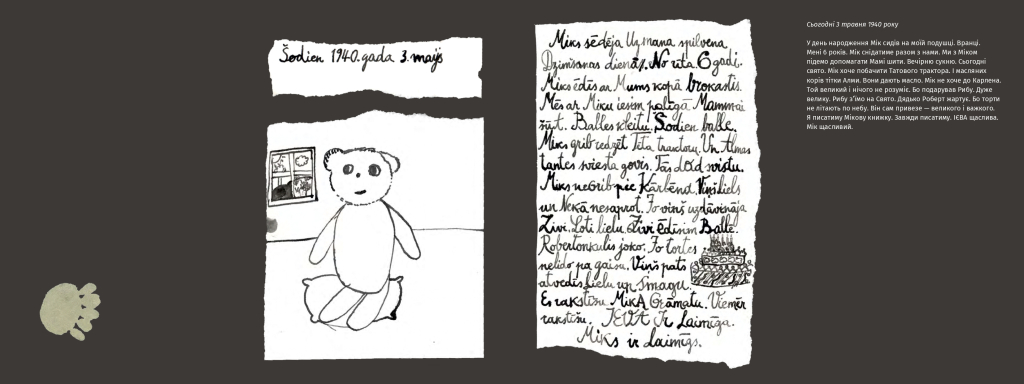 Šodien 1940.gada 3.maijs
Miks sēdēja Uz mana spilvena
Dzimšanas dienā. No rīta. 6 gadi.
Miks ēdīs ar Mums kopā brokastis.
Mēs ar Miku iesim palīgā Mammai
šūt. Balles kleitu. Šodien balle.
Miks grib redzēt Tēta traktoru. Un Almas
tantes sviesta govis. Tās dod sviestu.
Miks negrib pie Kārbēna. Viņš liels
un Nekā nesaprot. Jo viņš uzdāvināja
Zivi. Ļoti lielu. Zivi ēdīsim Ballē.
Robertonkulis joko. Jo tortes
nelido pa gaisu. Viņš pats
atvedīs lielu un smagu.
Es rakstīšu MikA Grāmatu. Vienmēr
rakstīšu. IEVA Ir Laimīga.
Miks ir Laimīgs.
Сьогодні 3 травня 1940 року
У день народження Мік сидів на моїй подушці. Вранці.
Мені 6 років. Мік снідатиме разом з нами. Ми з Міком
підемо допомагати Мамі шити. Вечірню сукню. Сьогодні
свято. Мік хоче побачити Татового трактора. І масляних
корів тітки Алми. Вони дають масло. Мік не хоче до Карпена.
Той великий і нічого не розуміє. Бо подарував Рибу. Дуже
велику. Рибу з’їмо на Свято. Дядько Роберт жартує. Бо торти
не літають по небу. Він сам привезе — великого і важкого.
Я писатиму Мікову книжку. Завжди писатиму. ІЄВА щаслива.
Мік щасливий.